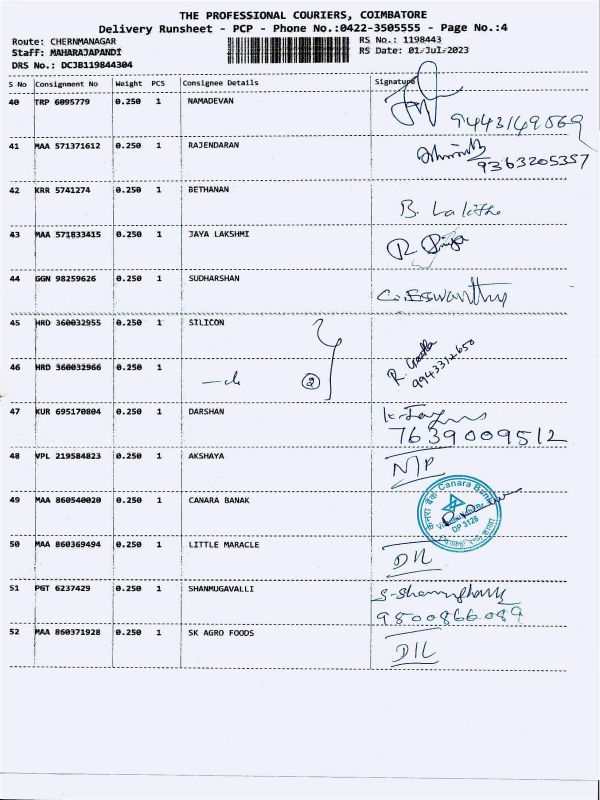 THE PROFESSIONAL COURIERS, COIMBATORE
Delivery Runsheet - PCP - Phone No.:0422-3505555 - Page No.:4
Route: CHERNMANAGAR RS No.: 1198443
Staff: MAHARAJAPANDI RS Date: 01-Jul-2023
DRS No.: DCJB119844304
S No Consignment No Weight PCS Consignee Details Signature
40 TRP 6095779 0.250 1 NAMADEVAN
9443149569
41 MAA 571371612 0.250 1 RAJENDARAN
9363205357
42 KRR 5741274 0.250 1 BETHANAN
B. Lalitha
43 MAA 571833415 0.250 1 JAYA LAKSHMI R. Priya
44 GGN 98259626 0.250 1 SUDHARSHAN
G. Eswanthy
45 HRD 360032955 0.250 1 SILICON
46 HRD 360032966 0.250 1
2 R.
9943312650
47 KUR 695170804 0.250 1 DARSHAN
7639009512
48 VPL 219584823 0.250 1 AKSHAYA
N/P
49 MAA 860540020 0.250 1 CANARA BANAK
केनरा बैंक Canara Bank
DP 3128
50 MAA 860369494 0.250 1 LITTLE MARACLE
D/L
51 PGT 6237429 0.250 1 SHANMUGAVALLI
9500866089
52 MAA 860371928 0.250 1 SK AGRO FOODS
D/L